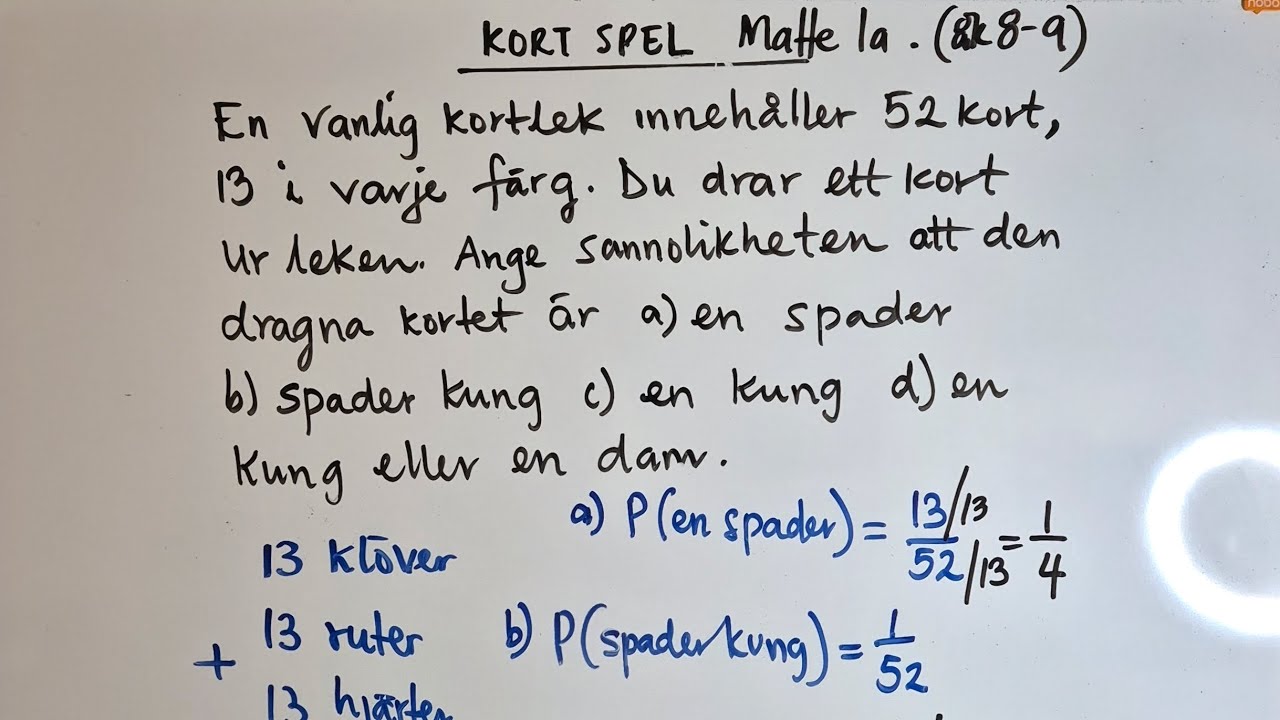 KORT SPEL Matte 1a. (åk 8-9)
En vanlig kortlek innehåller 52 kort,
13 i varje färg. Du drar ett kort
ur leken. Ange sannolikheten att den
dragna kortet är a) en spader
b) spader kung c) en kung d) en
kung eller en dam.
a) P(en spader) = 13/13 / 52/13 = 1/4
13 klöver
13 ruter
b) P(spader kung) = 1/52
+
13 hjärter